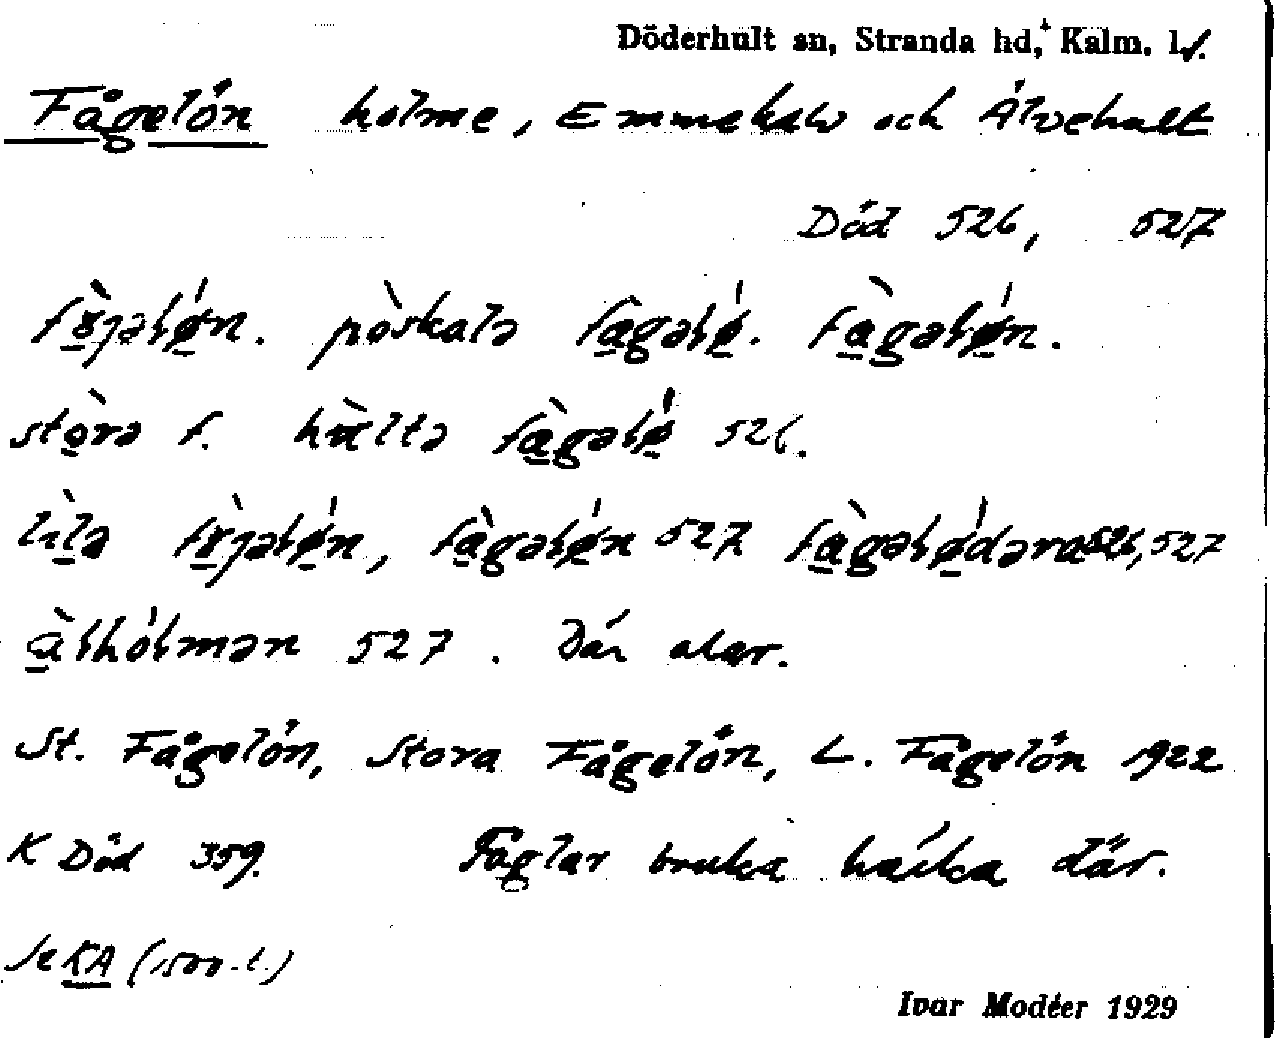 Döderhult sn, Stranda hd, Kalm. l.
Fågelön holme, Emmekalv och Älvehult
Död 526, 527
fɤ̀jəlǿn. pòskalə fàgəlǿ. fàgəlǿn.
stòra f. hùltə fàgəlǿ 526.
lìlə fɤ̀jəlǿn, fàgəlǿn 527 fàgəlǿdəra 526, 527
àlhólmən 527. Där alar.
St. Fågelön, Stora Fågelön, L. Fågelön 1922
K Död 359. Fåglar bruka häcka där.
Se KA (1500-t.)
Ivar Modéer 1929